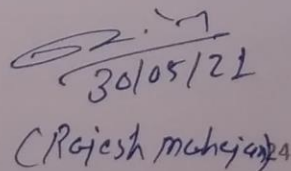 30/05/21
(Rajesh mahajan)